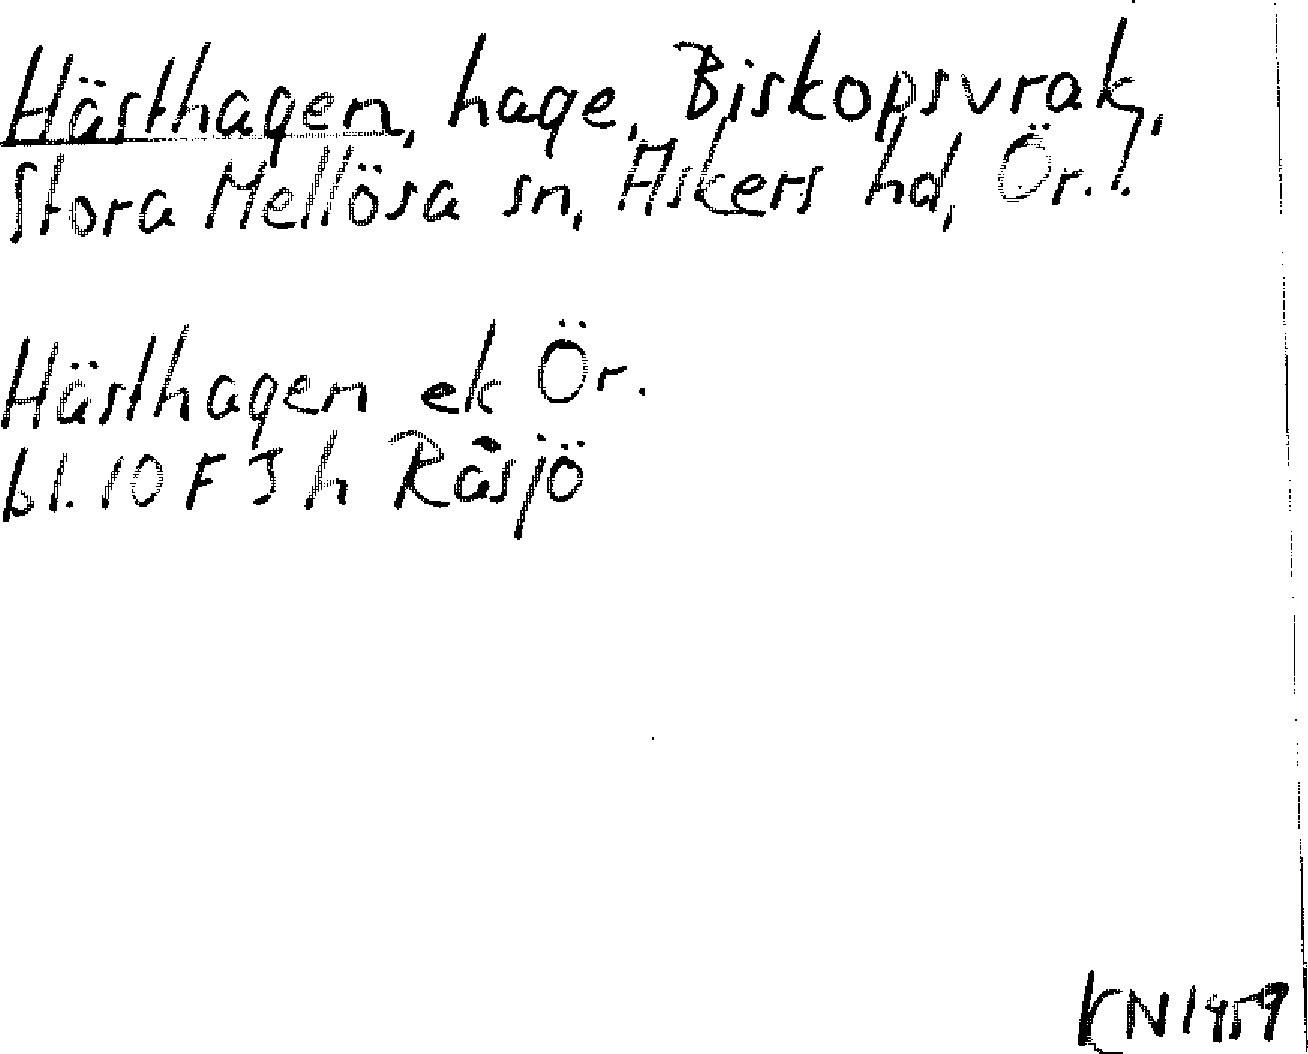 Hästhagen, hage, Biskopsvrak,
Stora Mellösa sn, Askers hd, Ör. l.
Hästhagen ek Ör.
bl. 10 F 3 h Räsjö
KN 1959